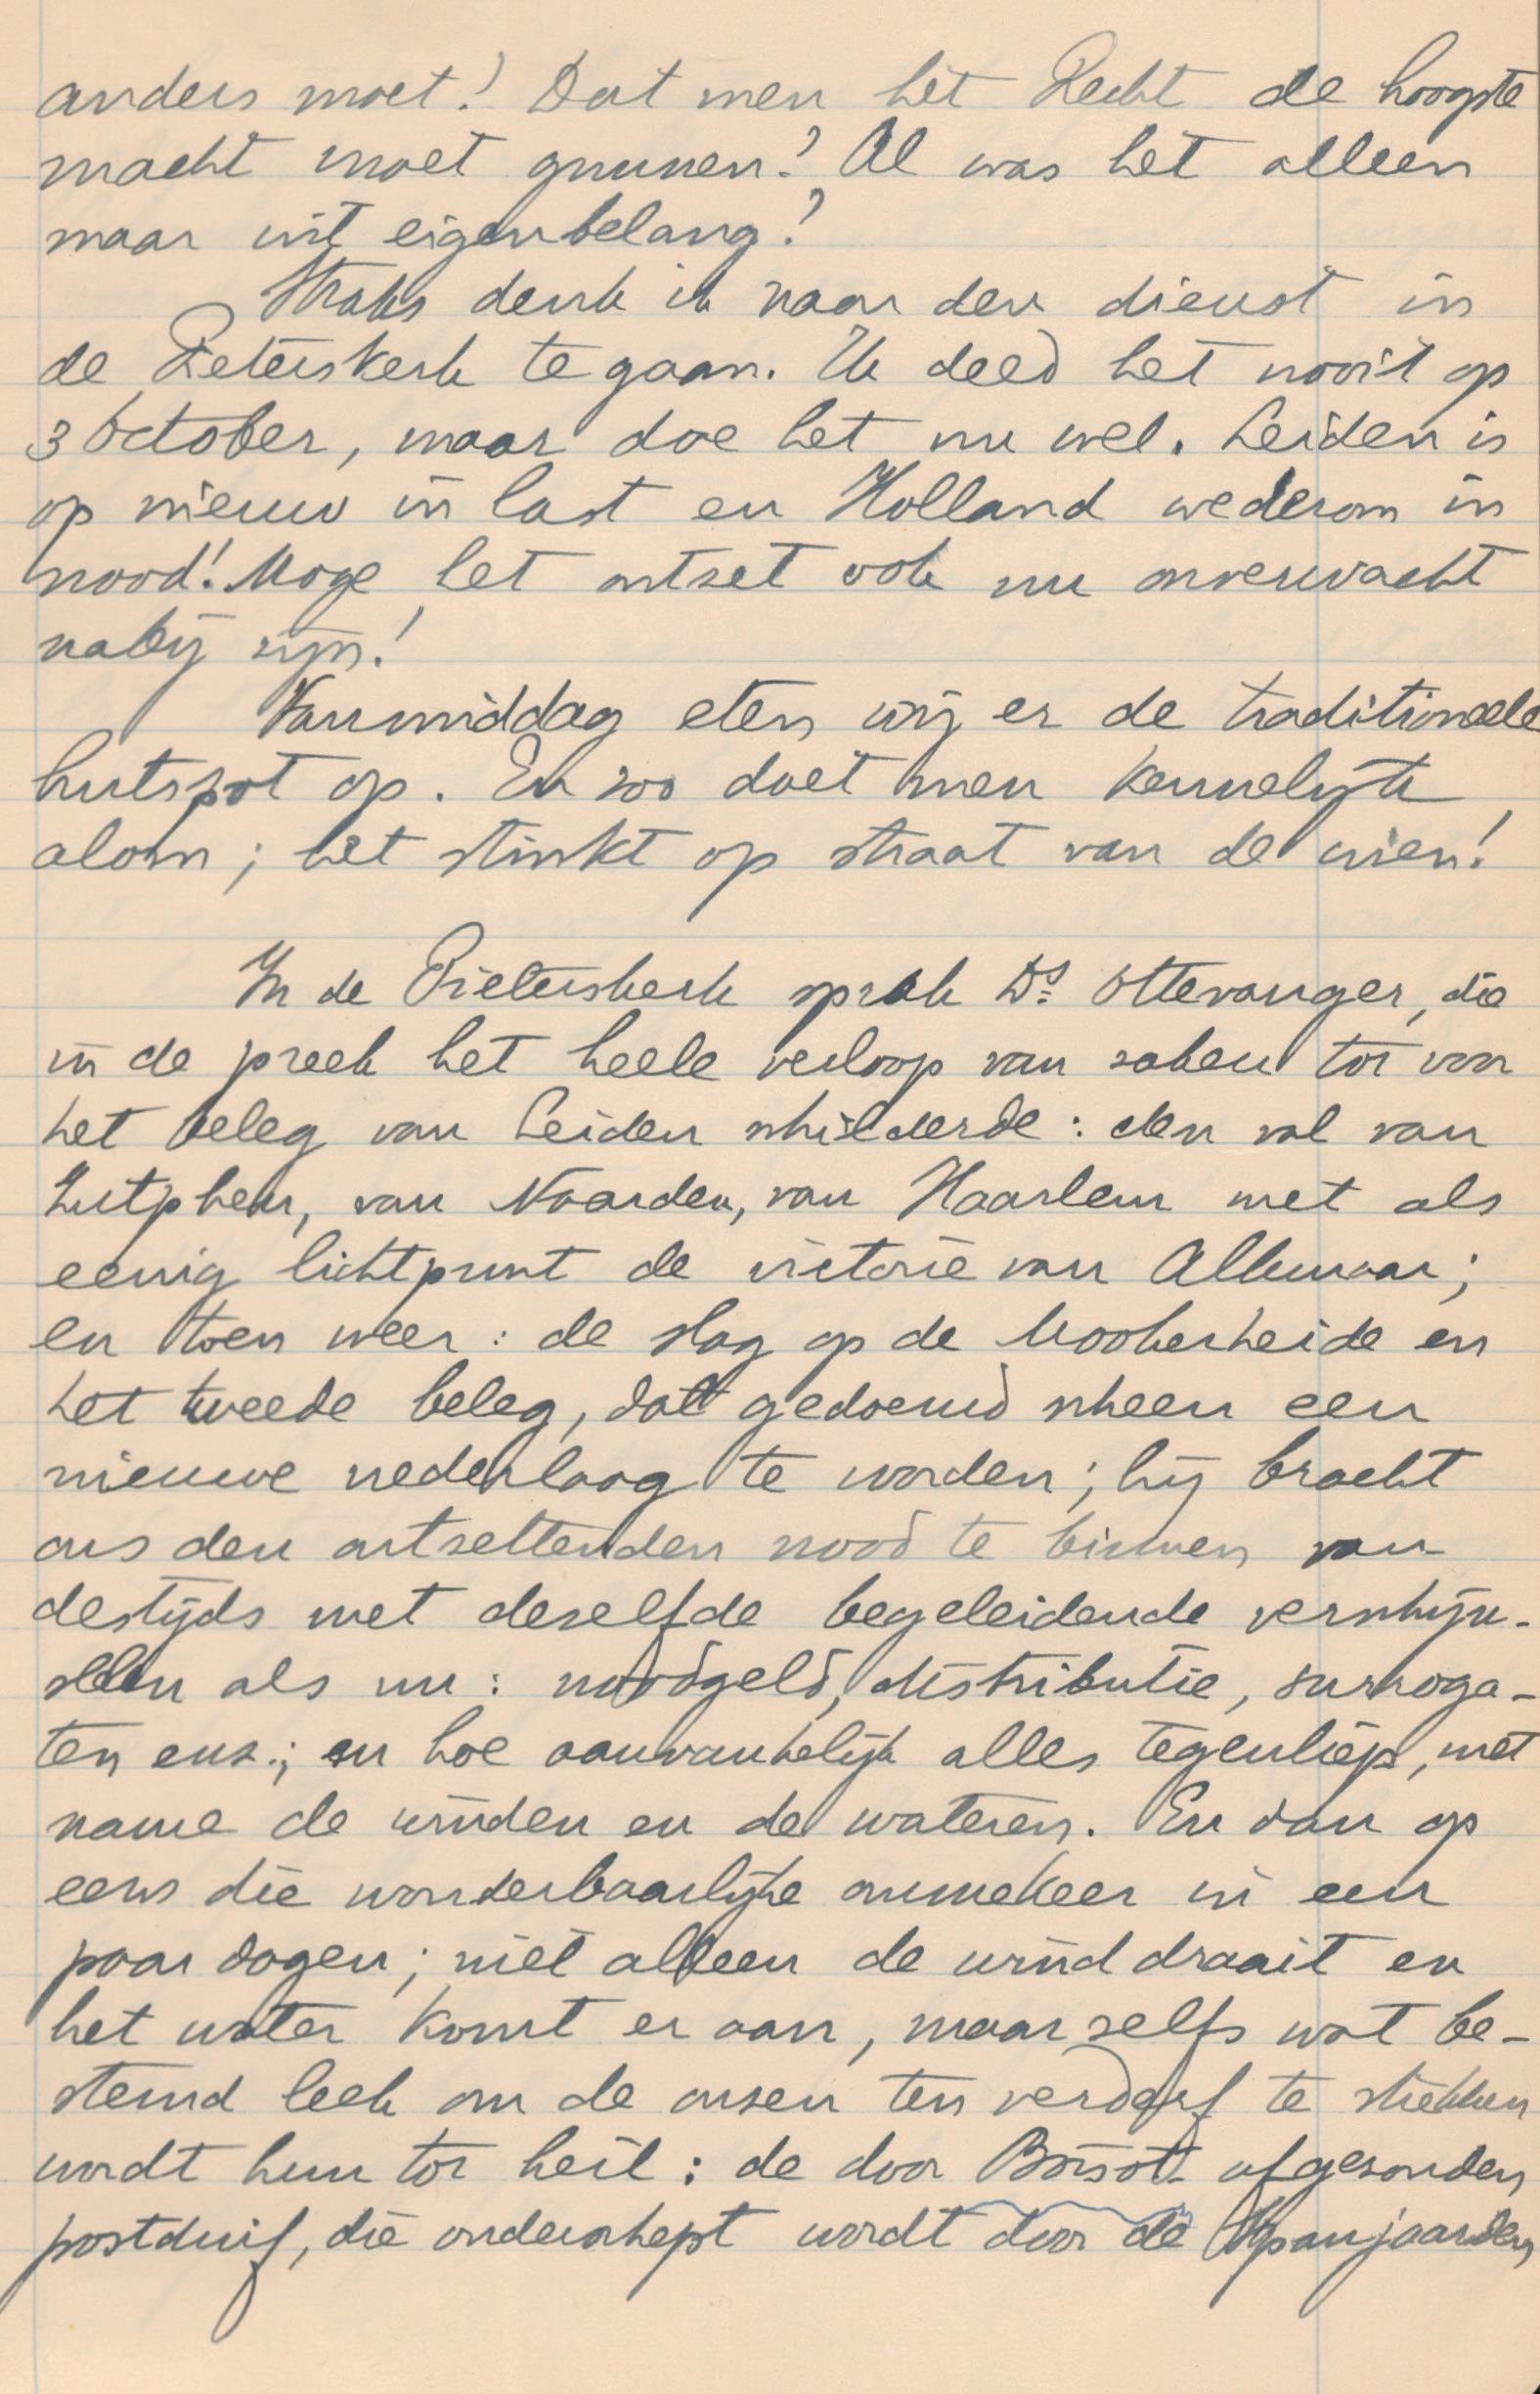 anders moet! Dat men het Recht de hoogste
macht moet gunnen! Al was het alleen
maar uit eigenbelang!
Straks denk ik naar den dienst in
de Pieterskerk te gaan. Ik deed het nooit op
3 October, maar doe het nu wel. Leiden is
op nieuw in last en Holland wederom in
nood! Moge het ontzet ook nu onverwacht
nabij zijn!
Vanmiddag eten wij er de traditioneele
hutspot op. En zoo doet men kennelijk
alom; het stinkt op straat van de uien!
In de Pieterskerk sprak Ds. Ottevanger, die
in de preek het heele verloop van zaken tot voor
het beleg van Leiden schilderde: den val van
Zutphen, van Naarden, van Haarlem met als
eenig lichtpunt de victorie van Alkmaar;
en toen weer: de slag op de Mookerheide en
het tweede beleg, dat gedoemd scheen een
nieuwe nederlaag te worden; hij bracht
ons den ontzettenden nood te binnen van
destijds met dezelfde begeleidende verschijn-
selen als nu: noodgeld, distributie, surroga-
ten enz.; en hoe aanvankelijk alles tegenliep, met
name de winden en de wateren. En dan op
eens die wonderbaarlijke ommekeer in een
paar dagen; niet alleen de wind draait en
het water komt er aan, maar zelfs wat be-
stemd leek om de onzen ten verderf te strekken
wordt hun tot heil: de door Boisot afgezonden
postduif, die onderschept wordt door de Spanjaarden